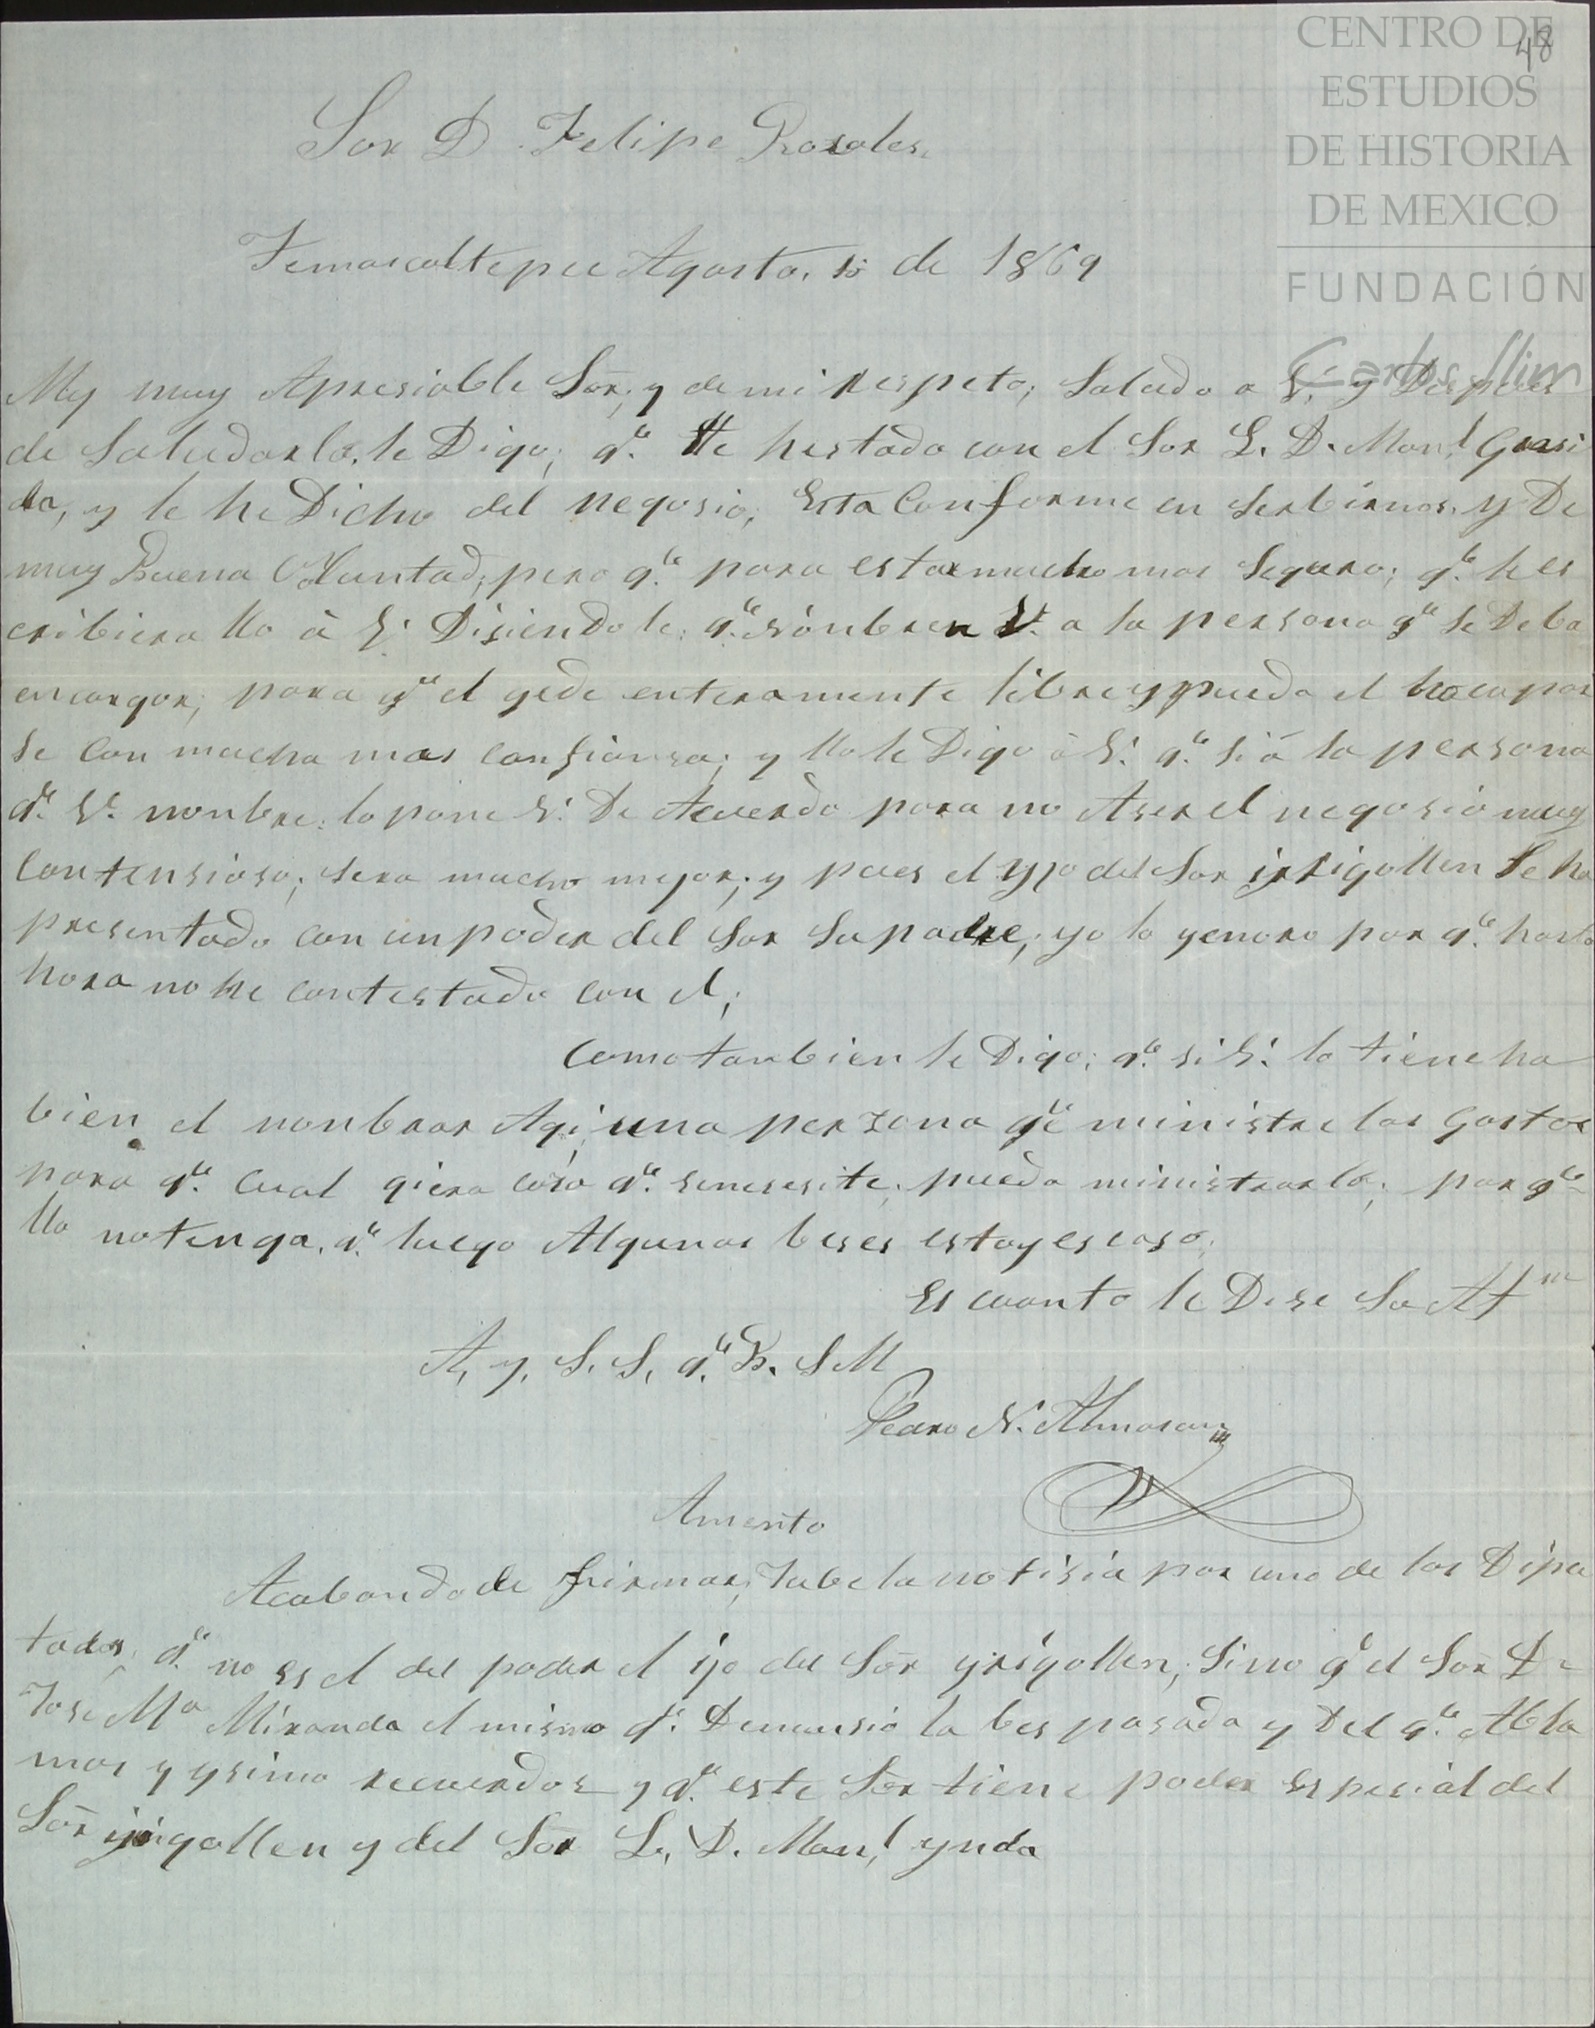 CENTRO DE
ESTUDIOS
DE HISTORIA
DE MEXICO
FUNDACIÓN
Carlos Slim
48
Sor D. Felipe Rosales.
Temascaltepec Agosto, de 1869
My muy Apresiable Sor, y de mi respeto; Saludo a V. y Despues
de Saludarlo, le Digo; q.e He hestado con el Sor L. D. Man.l Garsi
da, y le he Dicho del negosio; Esta Conforme en Serbirnos, y De
muy Buena Oluntad; pero q.e para estar mucho mas Seguro; q.e hes
cribiera llo á V. Disiendole; q.e nonbren V. a la persona q.e se Deba
encargar; para q.e el qede enteramente libre y pueda el hocupar
se Con mucha mas Confiansa; y llo le Digo á V. q.e si á la persona
q.e V. nonbre; lo pone V. De Acuerdo para no Aser el negosio muy
Contensioso; sera mucho mejor; y pues el yjo del Sor irrigollen Se ha
presentado con un poder del Sor Su padre; yo lo ygnoro por q.e hasta
hora no he contestado con el;
Como tanbien le Digo; q.e si V. lo tiene ha
bien el nonbrar Aqi una persona q.e ministre los Gastos
para q.e Cual qiera cosa q.e senesesite; pueda ministrarla; por q.e
llo notenga, q.e luego Algunas beses estoy escaso.
Es cuanto le Dise Su Af.mo
A, y, S. S, q.e B. S M
Pedro N. Almasan
Amento
Acabando de firmar; tube la notisia por uno de los Dipu
tados; q.e no es el del poder el ijo del Sor yrigollen; Sino q.e el Sor D
Jose M.a Miranda el mismo q.e Denunsio la bes pasada y Del q.e Abla
mos y ysimo recuerdos y q.e este Sor tiene poder Espesial del
Sor irigollen y del Sor L, D. Man.l ynda